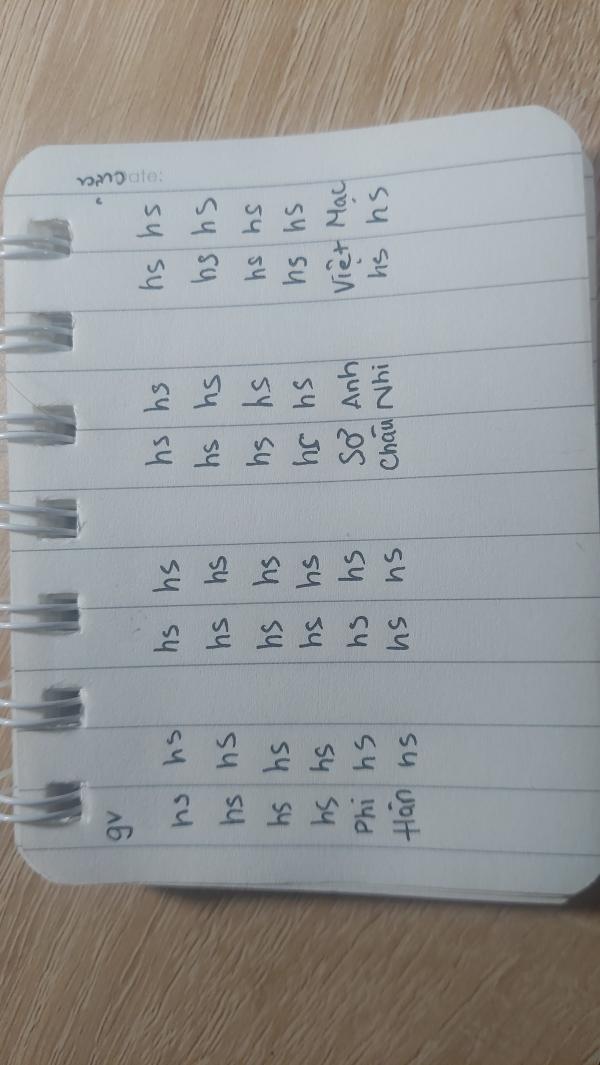 gv cửa ate:
hs hs hs hs hs hs hs hs
hs hs hs hs hs hs hs hs
hs hs hs hs hs hs hs hs
hs hs hs hs hs hs hs hs
Phi hs hs hs Sơ Anh Việt Mạc
Hân hs hs hs Châu Nhi hs hs